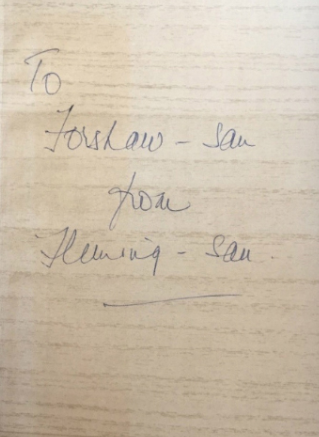 To
Forshaw - San
from
Fleming - San.